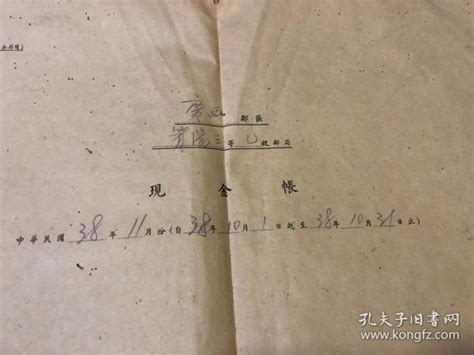 廣西郵區
三等乙級郵局
現金帳
中華民國38年11月份(自38年10月1日起至38年10月31日止)
孔夫子旧书网
www.kongfz.com